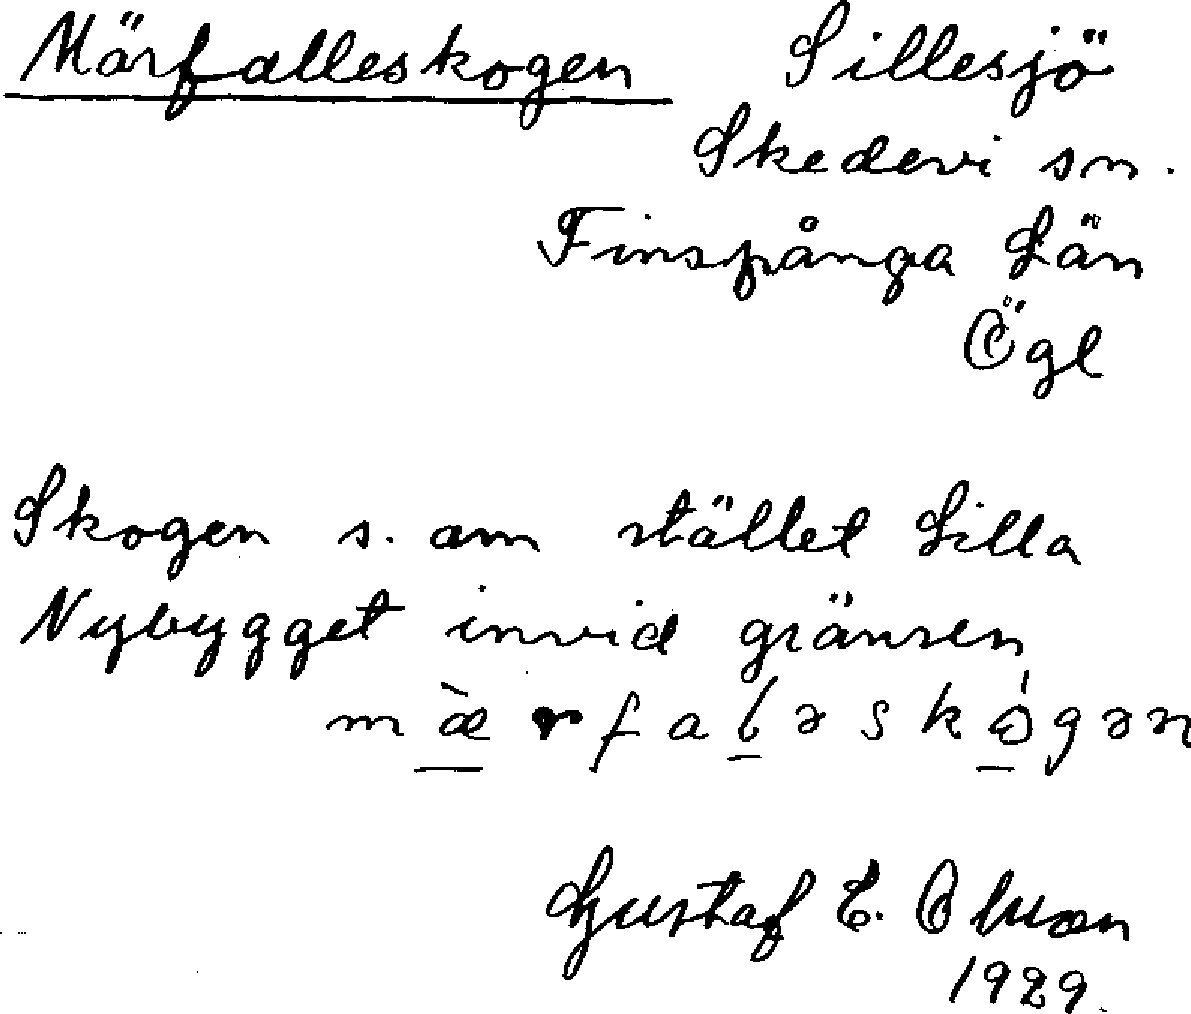 Märfalleskogen Sillesjö
Skedevi sn.
Finspånga Län
Ögl
Skogen s. om stället Lilla
Nybygget invid gränsen
mæ̀rfaləskógən
Gustaf E. Olsson
1929.